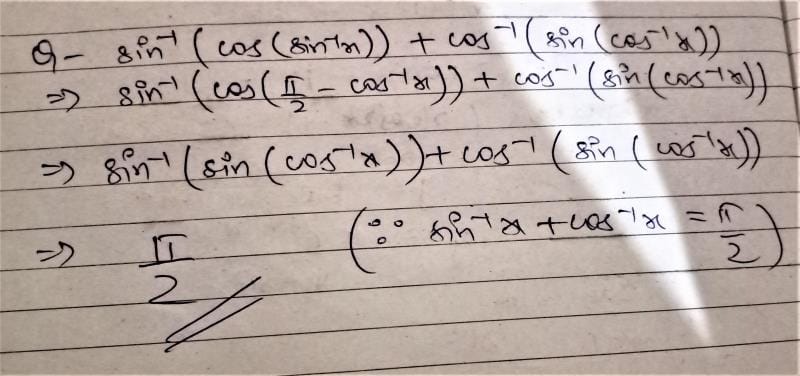 Q- sin⁻¹(cos(sin⁻¹x)) + cos⁻¹(sin(cos⁻¹x))
⇒ sin⁻¹(cos(π/2 - cos⁻¹x)) + cos⁻¹(sin(cos⁻¹x))
⇒ sin⁻¹(sin(cos⁻¹x)) + cos⁻¹(sin(cos⁻¹x))
⇒ π/2 (∵ sin⁻¹x + cos⁻¹x = π/2)